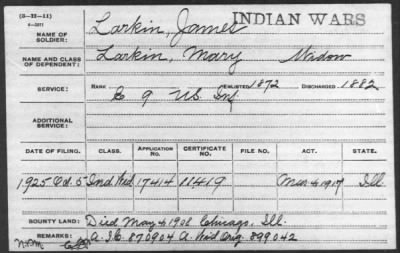 (3-22-11)
INDIAN WARS
NAME OF SOLDIER: Larkin, James
NAME AND CLASS OF DEPENDENT: Larkin, Mary Widow
SERVICE: RANK ENLISTED 1872 DISCHARGED 1882
E 9 US Inf
ADDITIONAL SERVICE:
DATE OF FILING. CLASS. APPLICATION NO. CERTIFICATE NO. FILE NO. ACT. STATE.
1925 Oct 5 Ind. Wid. 17414 11419 Mar 4 1917 Ill.
BOUNTY LAND: Died May 4 1908 Chicago, Ill.
REMARKS: 870904 A. Wid Orig. 899042